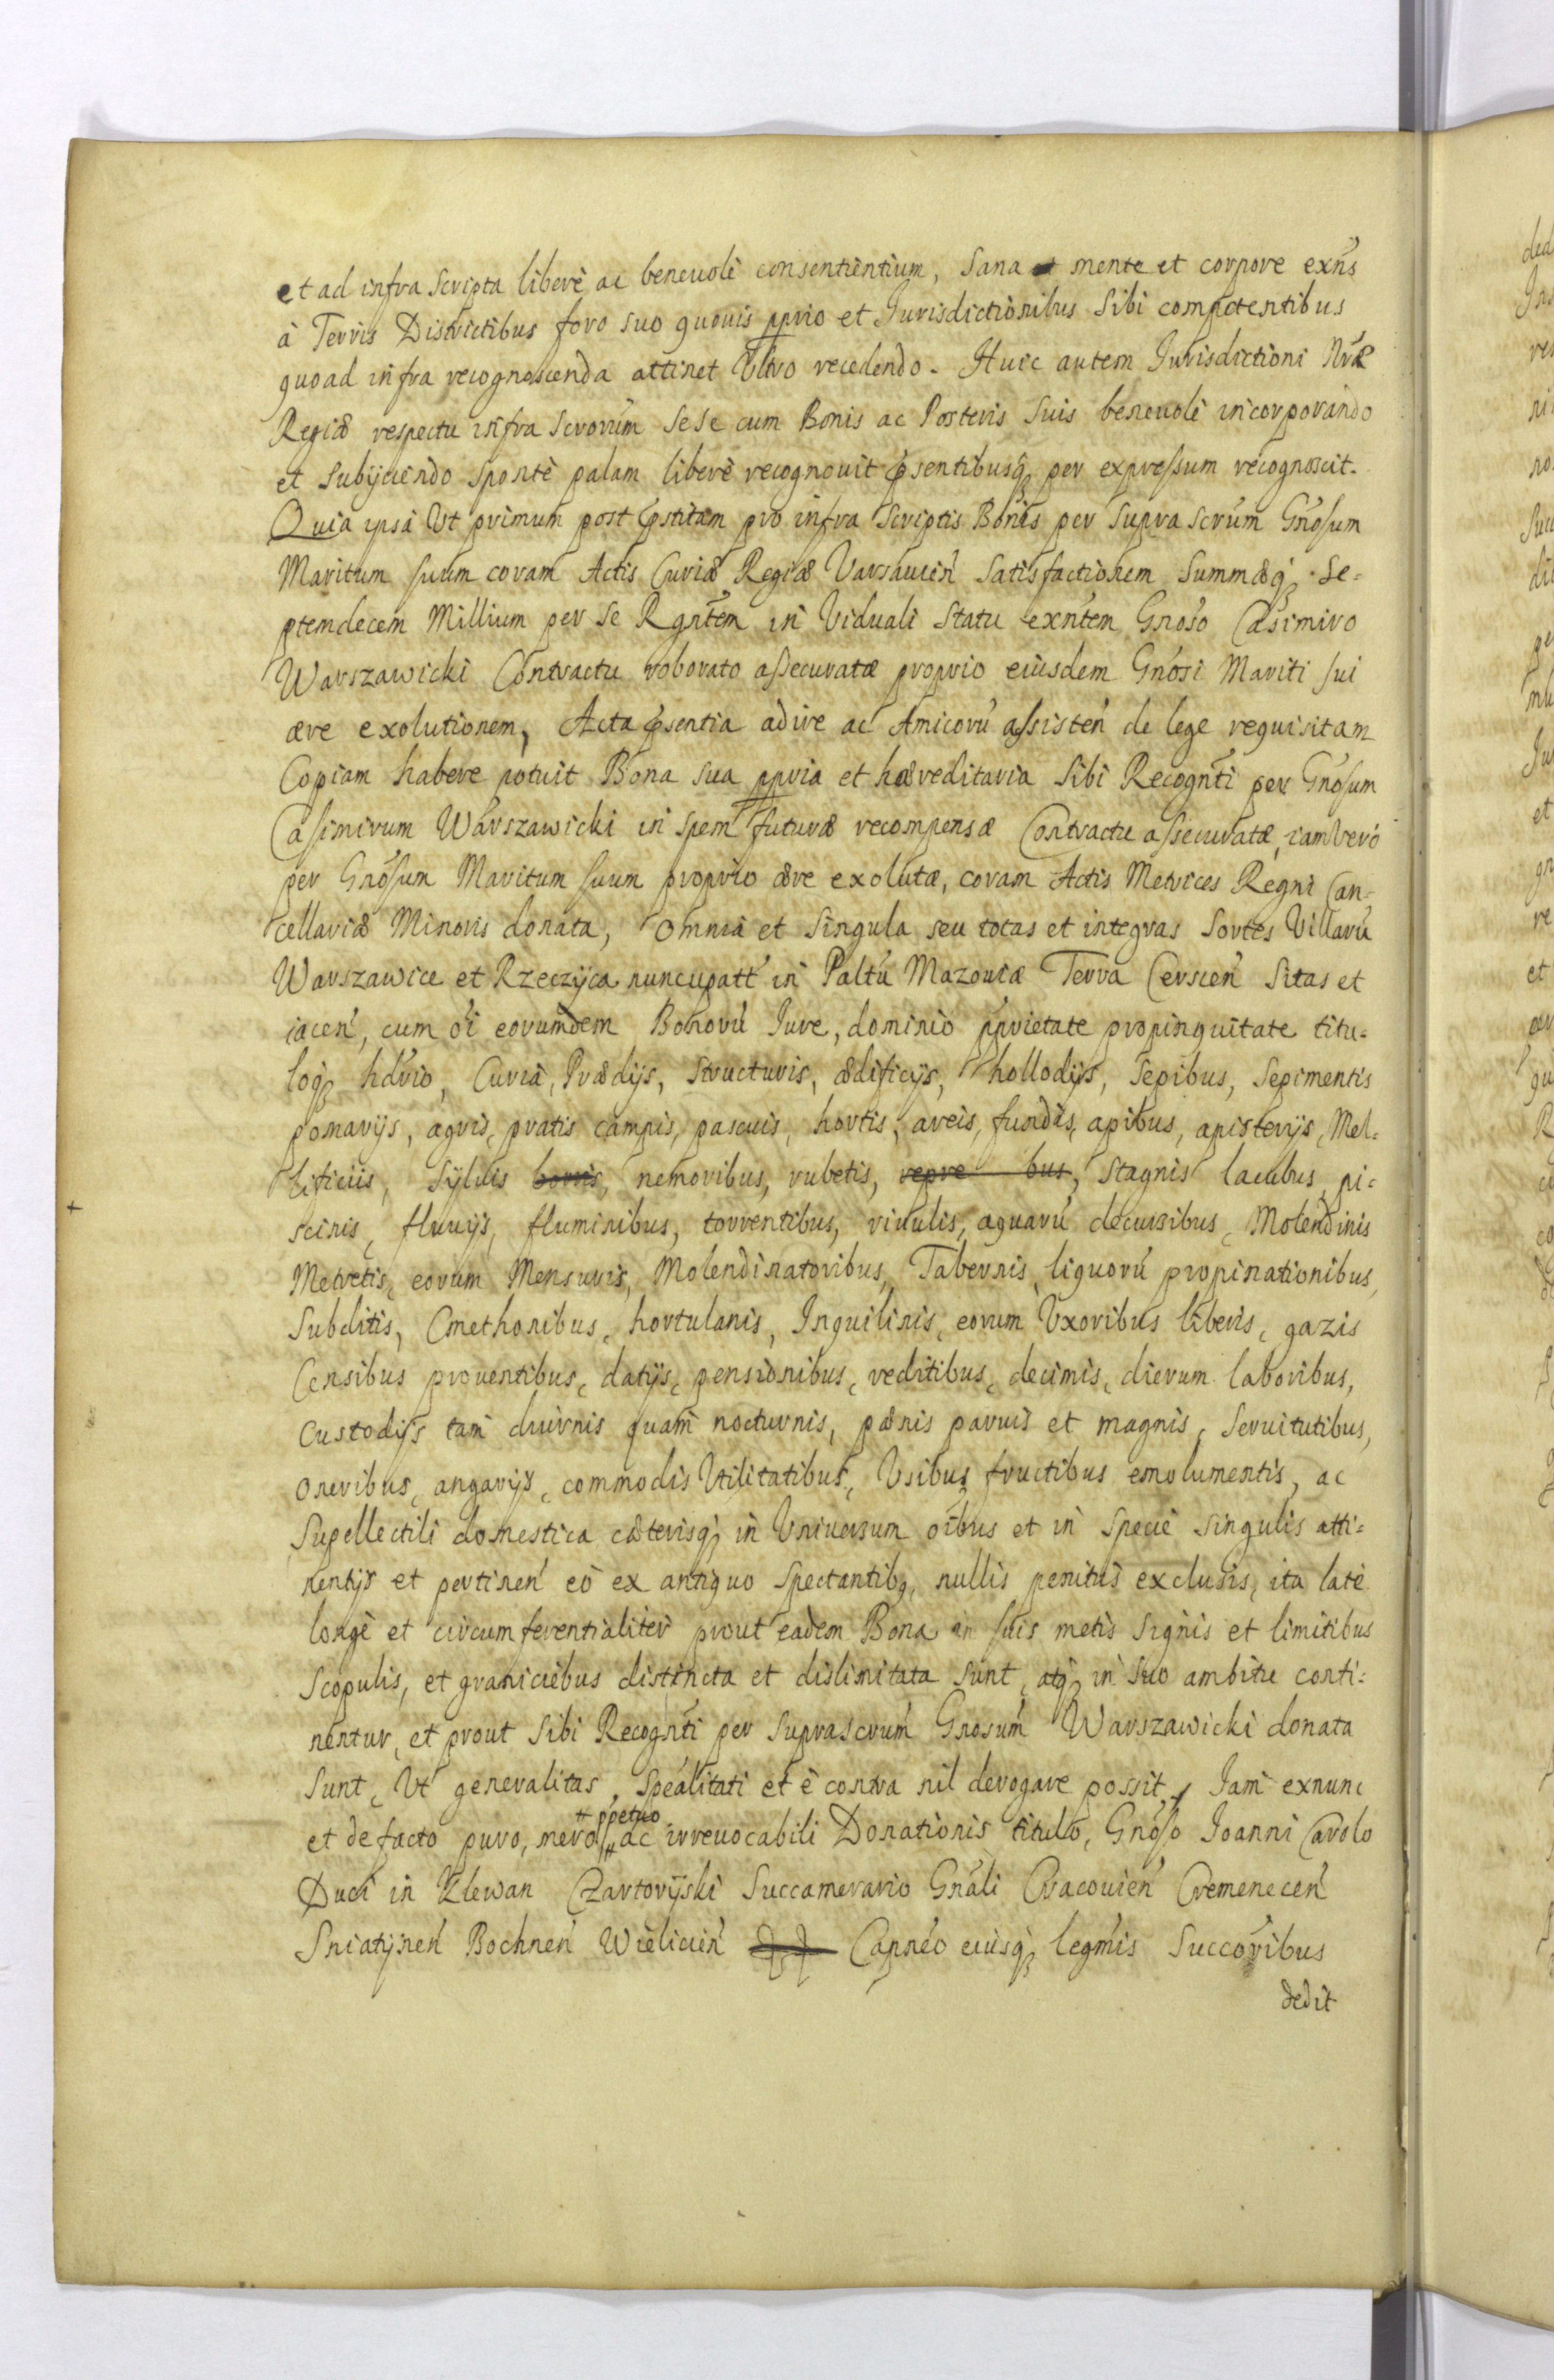 et ad infra scripta liberè ac beneuolè consentientium, Sana et mente et corpore exñs
à Terris Districtibus foro suo quouis pprio et Jurisdictionibus Sibi competentibus
quoad infra recognoscenda attinet Vltro recedendo. Huic autem Jurisdictioni Nræ
Regiæ respectu infra Scrorum Sese cum Bonis ac Posteris Suis beneuolè incorporando
et Subijciendo Spontè palam liberè recognouit psentibusq per expressum recognoscit.
Quia ipsa Vt primum post pstitam pro infra Scriptis Bonis per Supra Scrum Gnosum
Maritum suum coram Actis Curiæ Regiæ Varsauien Satisfactionem Summæq Se=
ptemdecem Millium per Se Rgntem in Viduali Statu exntem Gnoso Casimiro
Warszawicki Contractu roborato assecuratæ proprio eiusdem Gnosi Mariti sui
ære exolutionem, Acta psentia adire ac Amicorú assisteń de lege requisitam
Copiam habere potuit Bona Sua ppria et hæreditaria Sibi Recognti per Gnosum
Casimirum Warszawicki in Spem futuræ recompensæ Contractu assecuratæ, iam vero
per Gnosum Maritum suum proprio ære exolutæ, coram Actis Metrices Regni Can-
cellariæ Minoris donata, Omnia et Singula seu totas et integras Sortes Villarú
Warszawice et Rzeczyca nuncupatt in Paltú Mazouiæ Terra Cersceń Sitas et
iaceń, cum oi eorumdem Bonorú Jure, dominio pprietate propinquitate titu=
loq hdrio, Curia, Prædijs, Structuris, ædificijs, hollodijs, Sepibus, Sepimentis
pomarijs, agris, pratis campis, pascuis, hortis, areis, fundis, apibus, apisterijs, Mel=
lificiis, Syluis borris, nemoribus, rubetis, repre bus, Stagnis lacubus, pi=
scinis, fluuijs, fluminibus, torrentibus, riuulis, aquarú decursibus, Molendinis
Metretis, eorum Mensuris, Molendinatoribus, Tabernis, liquorú propinationibus,
Subditis, Cmethonibus, hortulanis, Inquilinis, eorum Vxoribus liberis, gazis
Censibus prouentibus, datijs, pensionibus, reditibus, decimis, dierum laboribus,
Custodijs tam diurnis quam nocturnis, pænis paruis et magnis, Seruitutibus,
Oneribus, angarijs, commodis Vtilitatibus, Vsibus fructibus emolumentis, ac
Supellectili domestica cæterisq in Vniuersum oibus et in Specie Singulis atti=
nentijs et pertineń eò ex antiquo Spectantibq, nullis penitus exclusis, ita latè
longè et circumferentialiter prout eadem Bona in suis metis Signis et limitibus
Scopulis, et graniciebus distincta et dislimitata Sunt, atq in Suo ambitu conti=
nentur, et prout Sibi Recognti per Suprascrum Gnosum Warszawicki donata
Sunt, Vt generalitas, Spealitati et è contra nil derogare possit, Jam exnunc
+ ppetuo
et de facto puro, mero ac irreuocabili Donationis titulo, Gnoso Joanni Carolo
Duci in Klewan Czartoryski Succamerario Gnali Cracouień Cremeneceń
Sniatyneń Bochneń Wieliceń Capneo eiusq legmis Succoribus
dedit